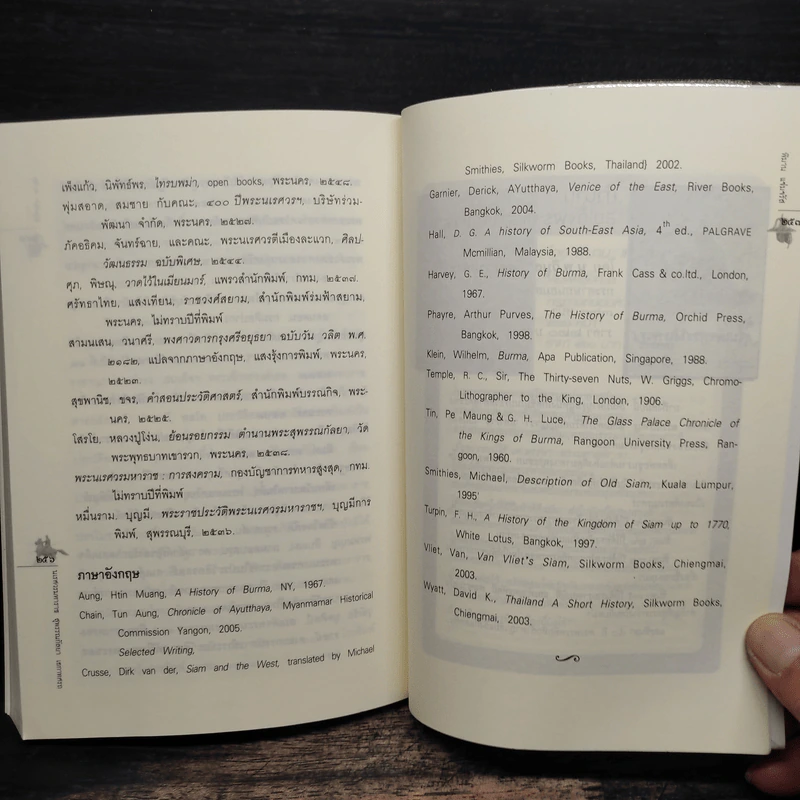 เพ็งแก้ว, นิพัทธ์พร, ไทรบพม่า, open books, พระนคร, ๒๕๔๘.
พุ่มสอาด, สมชาย กับคณะ, ๔๐๐ ปีพระนเรศวรฯ, บริษัทร่วม-
พัฒนา จำกัด, พระนคร, ๒๕๒๗.
ภัคอธิคม, จันทร์ฉาย, และคณะ, พระนเรศวรตีเมืองละแวก, ศิลป-
วัฒนธรรม ฉบับพิเศษ, ๒๕๔๔.
ศุภ, พิษณุ, วาดไว้ในเมียนมาร์, แพรวสำนักพิมพ์, กทม, ๒๕๓๗.
ศรัทธาไทย, แสงเทียน, ราชวงศ์สยาม, สำนักพิมพ์ร่มฟ้าสยาม,
พระนคร, ไม่ทราบปีที่พิมพ์
สามนเสน, วนาศรี, พงศาวดารกรุงศรีอยุธยา ฉบับวัน วลิต พ.ศ.
๒๑๘๒, แปลจากภาษาอังกฤษ, แสงรุ้งการพิมพ์, พระนคร,
๒๕๒๓.
สุขพานิช, ขจร, คำสอนประวัติศาสตร์, สำนักพิมพ์บรรณกิจ, พระ-
นคร, ๒๕๒๕.
โสรโย, หลวงปู่โง่น, ย้อนรอยกรรม ตำนานพระสุพรรณกัลยา, วัด
พระพุทธบาทเขารวก, พระนคร, ๒๕๓๘.
พระนเรศวรมหาราช : การสงคราม, กองบัญชาการทหารสูงสุด, กทม.
ไม่ทราบปีที่พิมพ์
หมื่นราม, บุญมี, พระราชประวัติพระนเรศวรมหาราชฯ, บุญมีการ
พิมพ์, สุพรรณบุรี, ๒๕๓๖.
ภาษาอังกฤษ
Aung, Htin Muang, A History of Burma, NY, 1967.
Chain, Tun Aung, Chronicle of Ayutthaya, Myanmamar Historical
Commission Yangon, 2005.
Selected Writing,
Crusse, Dirk van der, Siam and the West, translated by Michael
๒๕๖
Smithies, Silkworm Books, Thailand} 2002.
Garnier, Derick, AYutthaya, Venice of the East, River Books,
Bangkok, 2004.
Hall, D. G. A history of South-East Asia, 4th ed., PALGRAVE
Mcmillian, Malaysia, 1988.
Harvey, G. E., History of Burma, Frank Cass & co.ltd., London,
1967.
Phayre, Arthur Purves, The History of Burma, Orchid Press,
Bangkok, 1998.
Klein, Wilhelm, Burma, Apa Publication, Singapore, 1988.
Temple, R. C., Sir, The Thirty-seven Nuts, W. Griggs, Chromo-
Lithographer to the King, London, 1906.
Tin, Pe Maung & G. H. Luce, The Glass Palace Chronicle of
the Kings of Burma, Rangoon University Press, Ran-
goon, 1960.
Smithies, Michael, Description of Old Siam, Kuala Lumpur,
1995
Turpin, F. H., A History of the Kingdom of Siam up to 1770,
White Lotus, Bangkok, 1997.
Vliet, Van, Van Vliet's Siam, Silkworm Books, Chiengmai,
2003.
Wyatt, David K., Thailand A Short History, Silkworm Books,
Chiengmai, 2003.